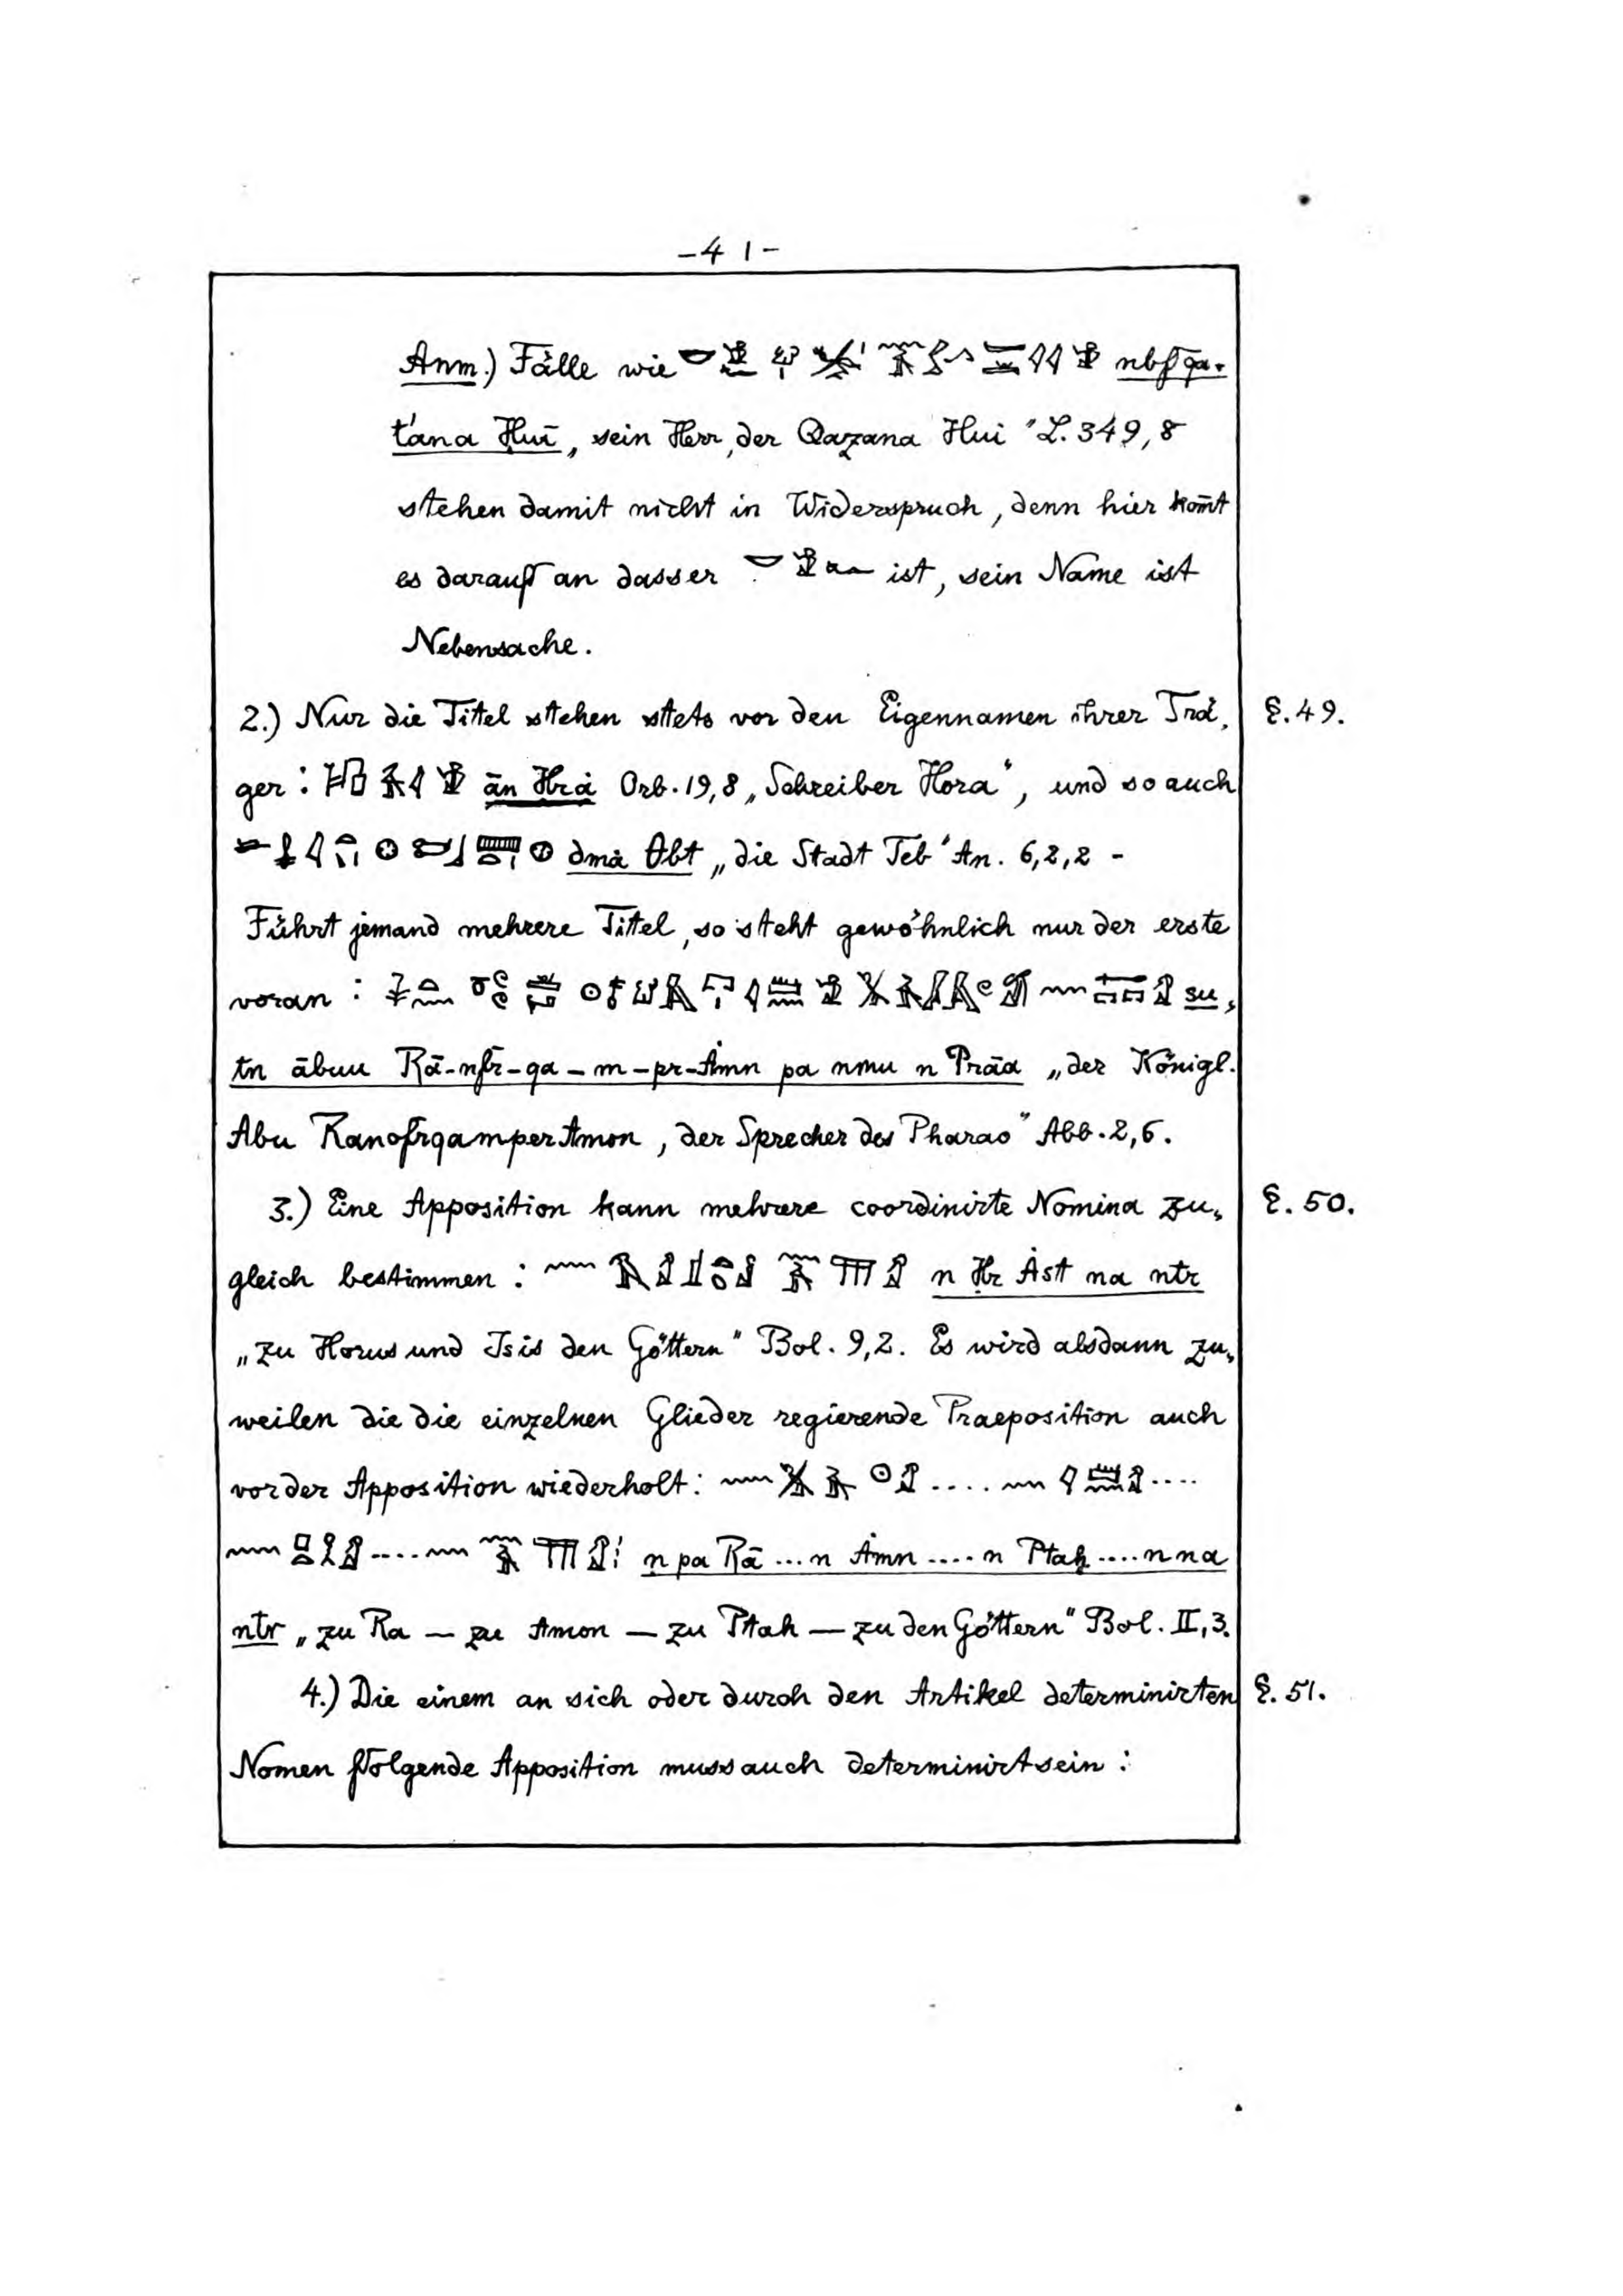 -41-
Anm.) Fälle wie nbf qa-
t'ana Ḥui „ sein Herr, der Qazana Hui" L. 349, 8
stehen damit nicht in Widerspruch, denn hier kom̄t
es darauf an dasser ist, sein Name ist
Nebensache.
2.) Nur die Titel stehen stets vor den Eigennamen ihrer Trä- §. 49.
ger : ān Ḥrȧ Orb. 19, 8 „Schreiber Hora", und so auch
dmȧ Ṭbt „die Stadt Teb" An. 6, 2, 2 -
Führt jemand mehrere Titel, so steht gewöhnlich nur der erste
voran : su-
tn ābuu Rā-nfr-qa-m-pr-Ȧmn pa nmu n Prāa „der Königl.
Abu Ranofrqamperamon, der Sprecher des Pharao" Abb. 2, 6.
3.) Eine Apposition kann mehrere coordinirte Nomina zu- §. 50.
gleich bestimmen : n Ḥr Ȧst na ntr
„zu Horus und Isis den Göttern" Bol. 9, 2. Es wird alsdann zu-
weilen die die einzelnen Glieder regierende Praeposition auch
vor der Apposition wiederholt : .... ....
.... n pa Rā ... n Ȧmn .... n Ptaḥ .... n na
ntr „zu Ra — zu Amon — zu Ptah — zu den Göttern" Bol. II, 3.
4.) Die einem an sich oder durch den Artikel determinirten §. 51.
Nomen folgende Apposition muss auch determinirt sein :